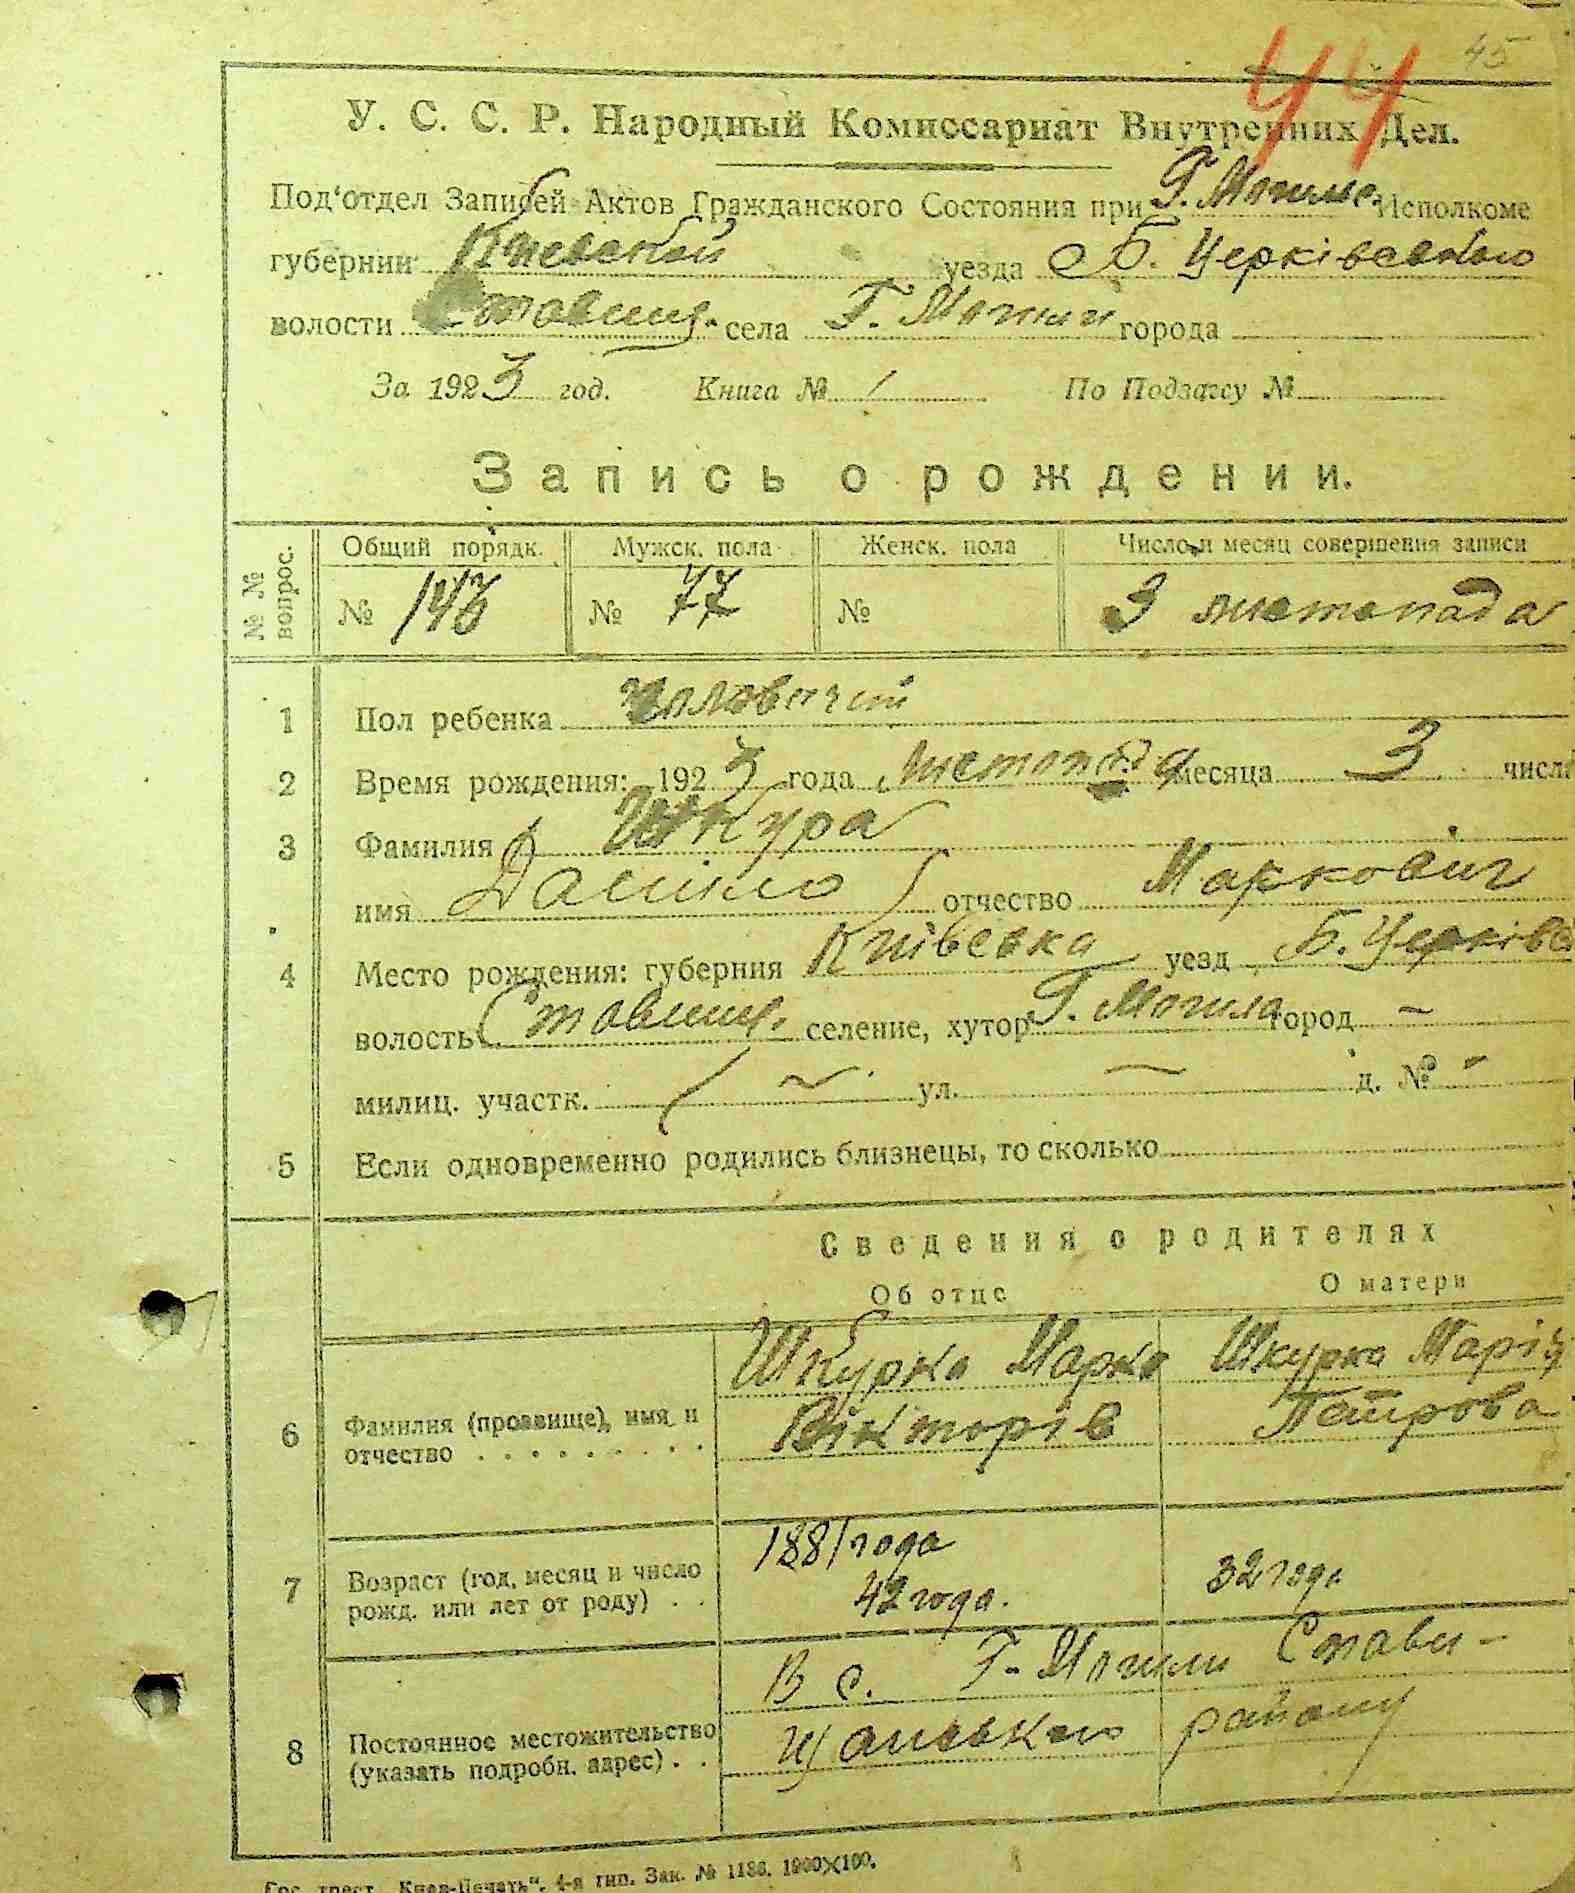 45
44
У. С. С. Р. Народный Комиссариат Внутренних Дел.
Под'отдел Записей Актов Гражданского Состояния при Г. Могил. Исполкоме
губернии Киевской уезда Б. Церківського
волости Ставищ. села Г. Могили города
За 1923 год. Книга № 1 По Подзагсу №
Запись о рождении.
№ № вопрос. Общий порядк. Мужск. пола Женск. пола Число и месяц совершения записи
№ 146 № 77 № 3 листопада
1 Пол ребенка Чоловичий
2 Время рождения: 1923 года Листопада месяца 3 числа
3 Фамилия Шкура
имя Даніло отчество Маркович
4 Место рождения: губерния Київська уезд Б. Церків
волость Ставищ. селение, хутор Г. Могила город –
милиц. участк. — ул. — д. № "
5 Если одновременно родились близнецы, то сколько
Сведения о родителях
Об отце О матери
Шкурка Марко Шкурка Марія
6 Фамилия (прозвище), имя и Вікторів Петрова
отчество . . . . . . . . .
188/ года
7 Возраст (год, месяц и число 32 года
рожд. или лет от роду) . . 42 года.
В с. Г. Могили Стави-
8 Постоянное местожительство щанського району
(указать подробн. адрес) . .
Гос. трест „Киев-Печать“, 4-я тип. Зак. № 1186. 1900X100.